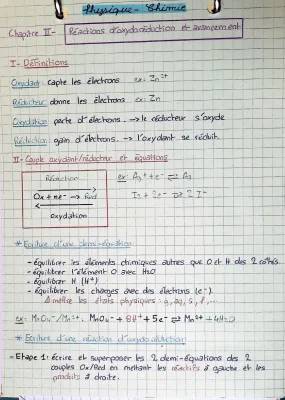 Physique - Chimie
Chapitre II - Réactions d'oxydoréduction et avancement
I - Définitions
Oxydant capte les électrons ex: Zn²⁺
Réducteur donne les électrons ex: Zn
Oxydation perte d'électrons. → le réducteur s'oxyde
Réduction gain d'électrons. → l'oxydant se réduit.
II - Couple oxydant/réducteur et équations
Réduction
Ox + ne⁻ ⇌ Red
oxydation
ex: Ag⁺ + e⁻ ⇌ Ag
I₂ + 2e⁻ ⇌ 2 I⁻
* Ecriture d'une demi-équation
- équilibrer les éléments chimiques autres que O et H des 2 côtés.
- équilibrer l'élément O avec H₂O
- équilibrer H (H⁺)
- équilibrer les charges avec des électrons (e⁻).
mettre les états physiques: g, aq, s, l, ...
ex: MnO₄⁻/Mn²⁺. MnO₄⁻ + 8H⁺ + 5e⁻ ⇌ Mn²⁺ + 4H₂O
* Ecriture d'une réaction d'oxydoréduction
- Etape 1: écrire et superposer les 2 demi-équations des 2
couples Ox/Red en mettant les réactifs à gauche et les
produits à droite.